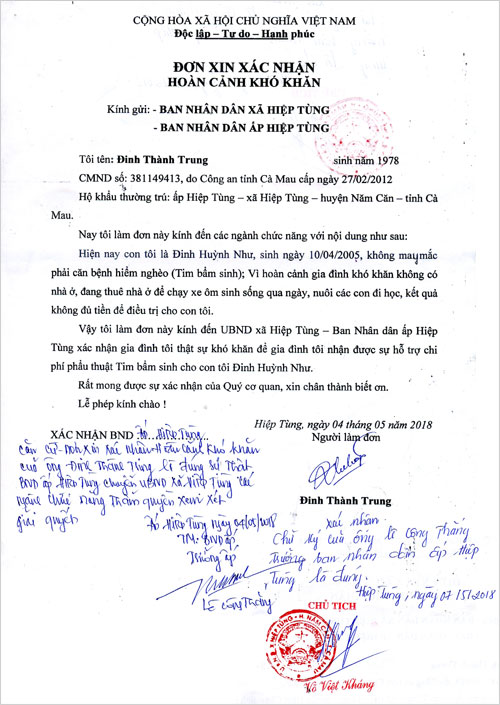 CỘNG HÒA XÃ HỘI CHỦ NGHĨA VIỆT NAM
Độc lập – Tự do – Hạnh phúc
ĐƠN XIN XÁC NHẬN
HOÀN CẢNH KHÓ KHĂN
Kính gửi: - BAN NHÂN DÂN XÃ HIỆP TÙNG
- BAN NHÂN DÂN ẤP HIỆP TÙNG
Tôi tên: Đinh Thành Trung sinh năm 1978
CMND số: 381149413, do Công an tỉnh Cà Mau cấp ngày 27/02/2012
Hộ khẩu thường trú: ấp Hiệp Tùng – xã Hiệp Tùng – huyện Năm Căn – tỉnh Cà
Mau.
Nay tôi làm đơn này kính đến các ngành chức năng với nội dung như sau:
Hiện nay con tôi là Đinh Huỳnh Như, sinh ngày 10/04/2005, không may mắc
phải căn bệnh hiểm nghèo (Tim bẩm sinh); Vì hoàn cảnh gia đình khó khăn không có
nhà ở, đang thuê nhà ở để chạy xe ôm sinh sống qua ngày, nuôi các con đi học, kết quả
không đủ tiền để điều trị cho con tôi.
Vậy tôi làm đơn này kính đến UBND xã Hiệp Tùng – Ban Nhân dân ấp Hiệp
Tùng xác nhận gia đình tôi thật sự khó khăn để gia đình tôi nhận được sự hỗ trợ chi
phí phẩu thuật Tim bẩm sinh cho con tôi Đinh Huỳnh Như.
Rất mong được sự xác nhận của Quý cơ quan, xin chân thành biết ơn.
Lễ phép kính chào !
Hiệp Tùng, ngày 04 tháng 05 năm 2018
XÁC NHẬN BND ấp Hiệp Tùng
Người làm đơn
Căn cứ đơn xin xác nhận hoàn cảnh khó khăn
của ông Đinh Thành Trung là đúng sự thật
BND ấp Hiệp Tùng chuyển UBND xã Hiệp Tùng các
ngành chức năng thẩm quyền xem xét
giải quyết
Đinh Thành Trung
Ấp Hiệp Tùng ngày 04/05/2018
TM. BND ấp
Trưởng ấp
Lê Công Thắng
xác nhận
Chữ ký của ông lê Công Thắng
trưởng ban nhân dân ấp Hiệp
Tùng là đúng.
Hiệp Tùng, ngày 07/5/2018
CHỦ TỊCH
Võ Việt Kháng